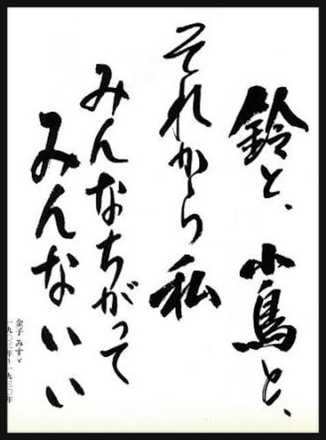 鈴と、小鳥と、
それから私
みんなちがって
みんないい
金子みすゞ
一九〇三年～一九三〇年